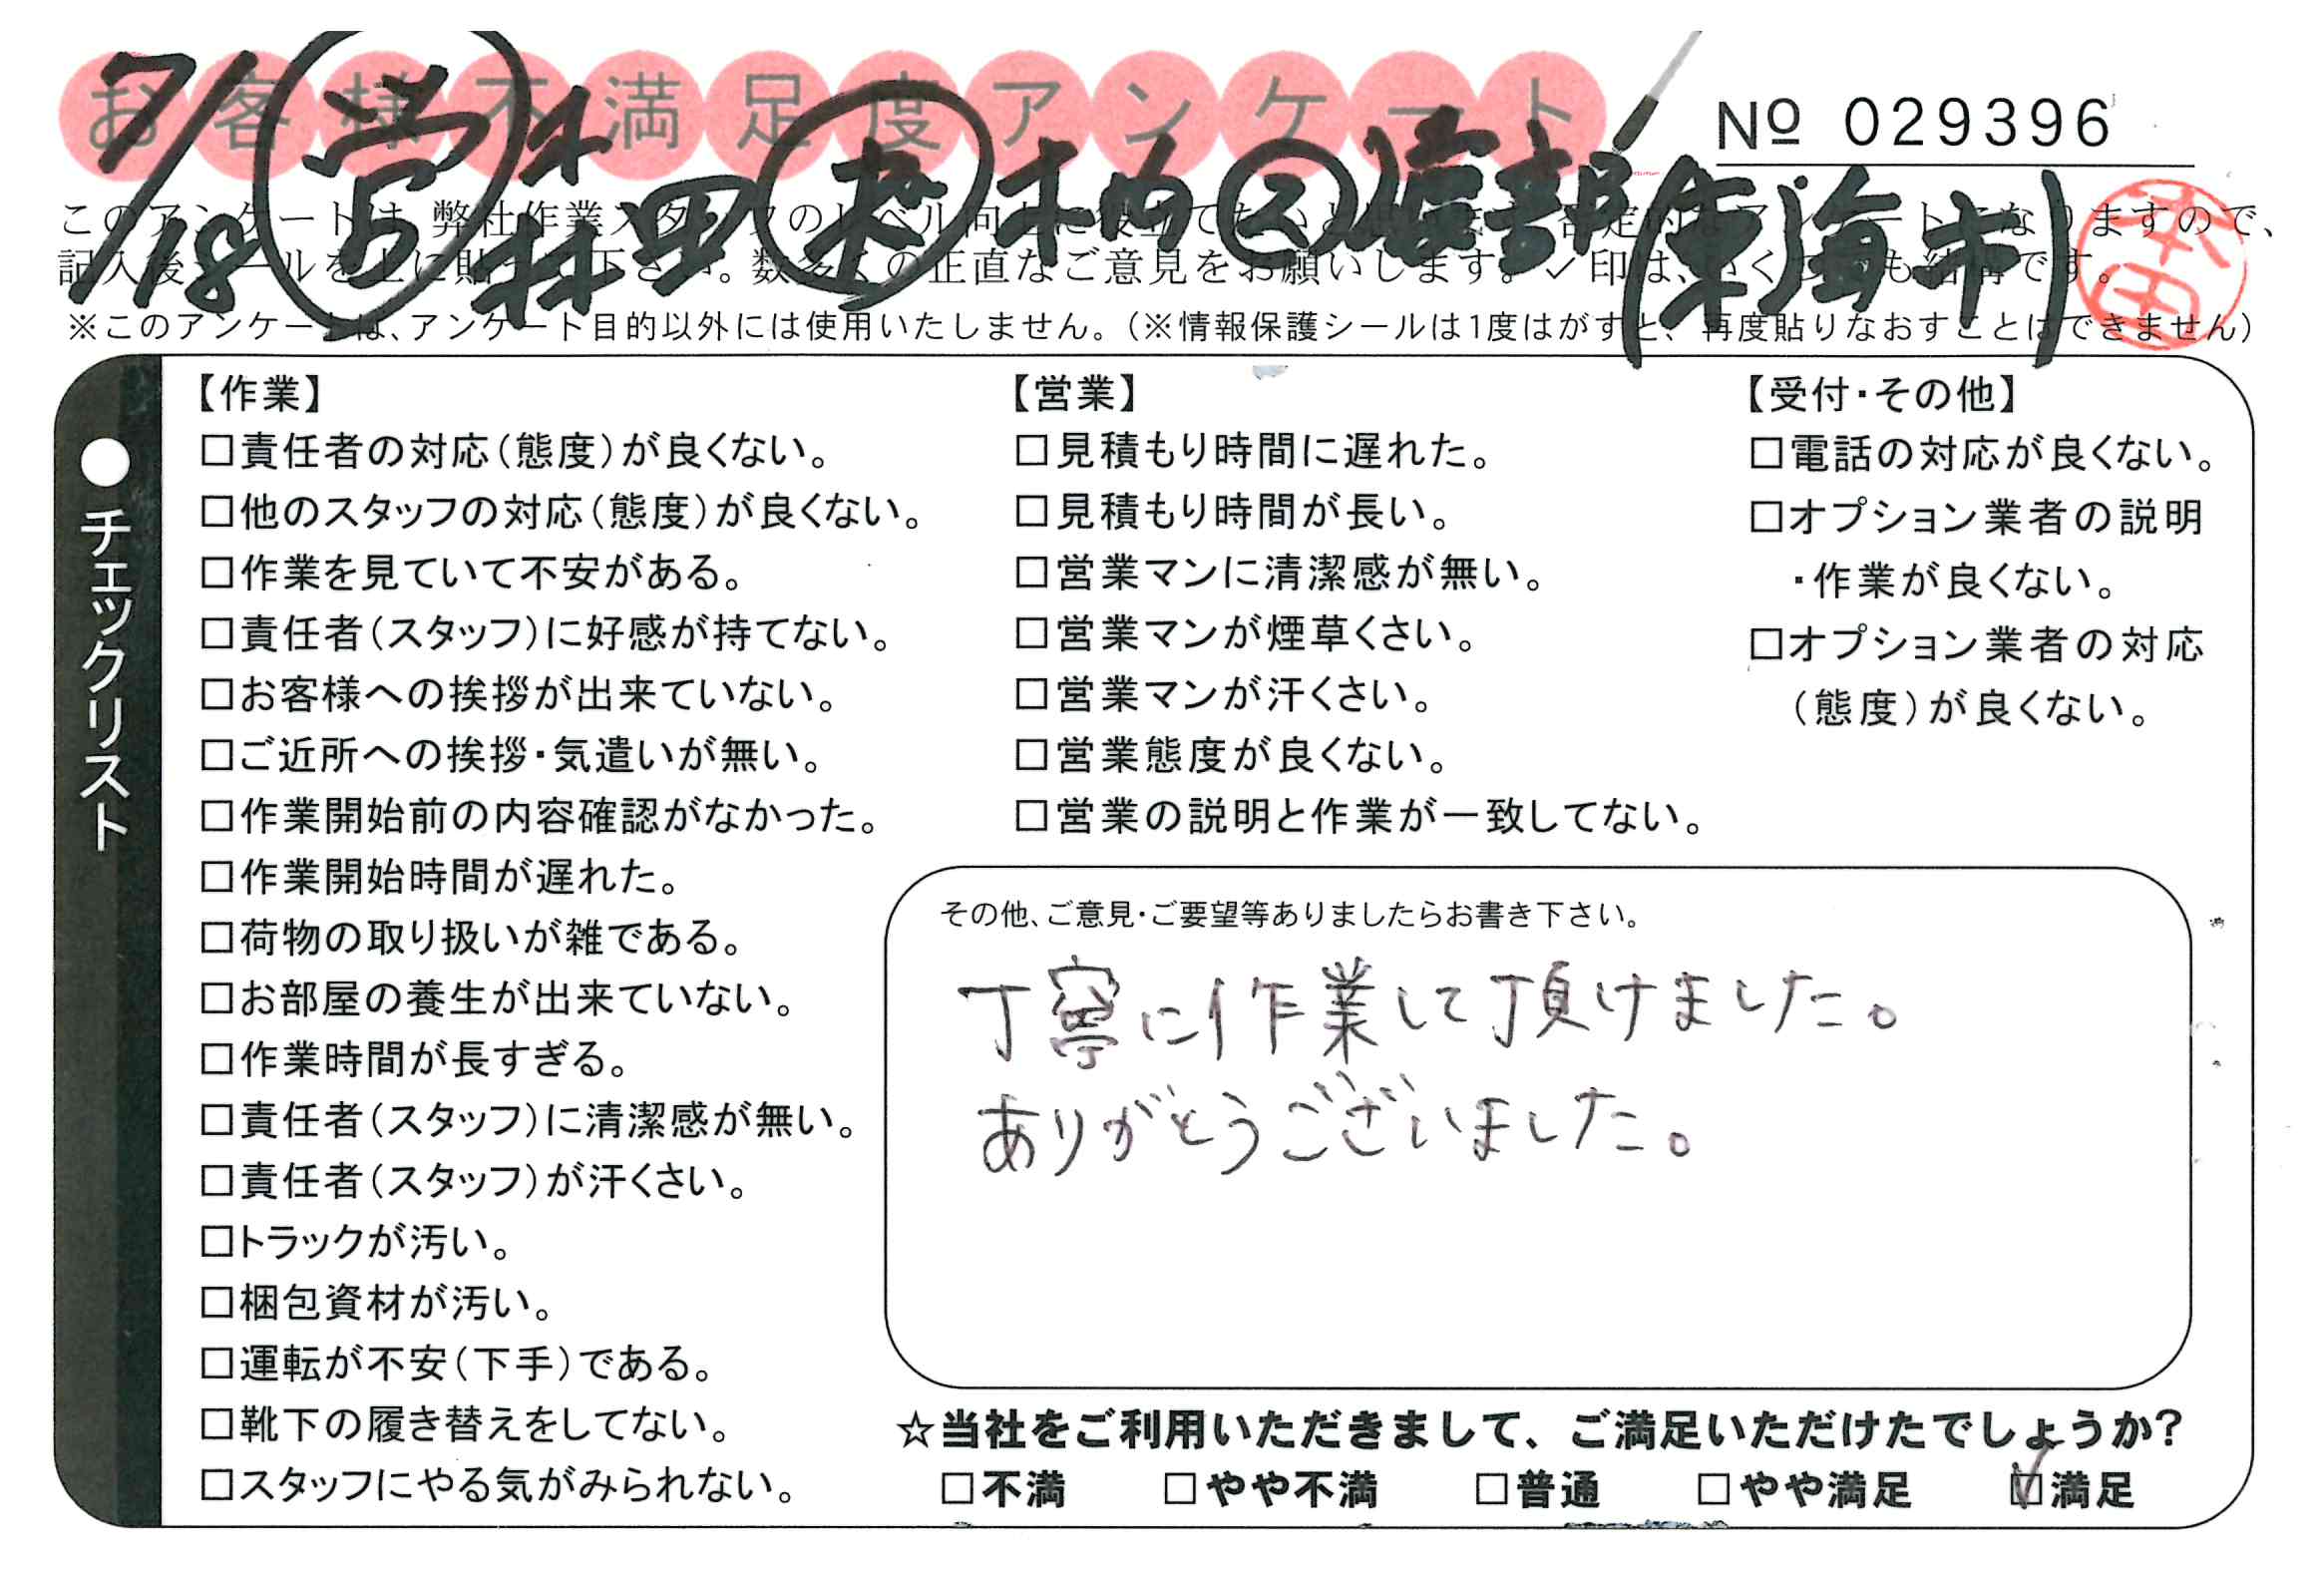 お客様不満足度アンケート
No 029396
7/18 営 林田 柏 ス 渡部 (東海市)
本田
このアンケートは、弊社作業スタッフのレベル向上に役立てたいと思います。否定的なアンケートになりますので、
記入後シールを上に貼って下さい。数多くの正直なご意見をお願いします。✓印は、いくつでも結構です。
※このアンケートは、アンケート目的以外には使用いたしません。(※情報保護シールは1度はがすと、再度貼りなおすことはできません)
●チェックリスト
【作業】
□責任者の対応(態度)が良くない。
□他のスタッフの対応(態度)が良くない。
□作業を見ていて不安がある。
□責任者(スタッフ)に好感が持てない。
□お客様への挨拶が出来ていない。
□ご近所への挨拶・気遣いが無い。
□作業開始前の内容確認がなかった。
□作業開始時間が遅れた。
□荷物の取り扱いが雑である。
□お部屋の養生が出来ていない。
□作業時間が長すぎる。
□責任者(スタッフ)に清潔感が無い。
□責任者(スタッフ)が汗くさい。
□トラックが汚い。
□梱包資材が汚い。
□運転が不安(下手)である。
□靴下の履き替えをしてない。
□スタッフにやる気がみられない。
【営業】
□見積もり時間に遅れた。
□見積もり時間が長い。
□営業マンに清潔感が無い。
□営業マンが煙草くさい。
□営業マンが汗くさい。
□営業態度が良くない。
□営業の説明と作業が一致してない。
【受付・その他】
□電話の対応が良くない。
□オプション業者の説明
・作業が良くない。
□オプション業者の対応
(態度)が良くない。
その他、ご意見・ご要望等ありましたらお書き下さい。
丁寧に作業して頂けました。
ありがとうございました。
☆当社をご利用いただきまして、ご満足いただけたでしょうか?
□不満 □やや不満 □普通 □やや満足 ☑満足